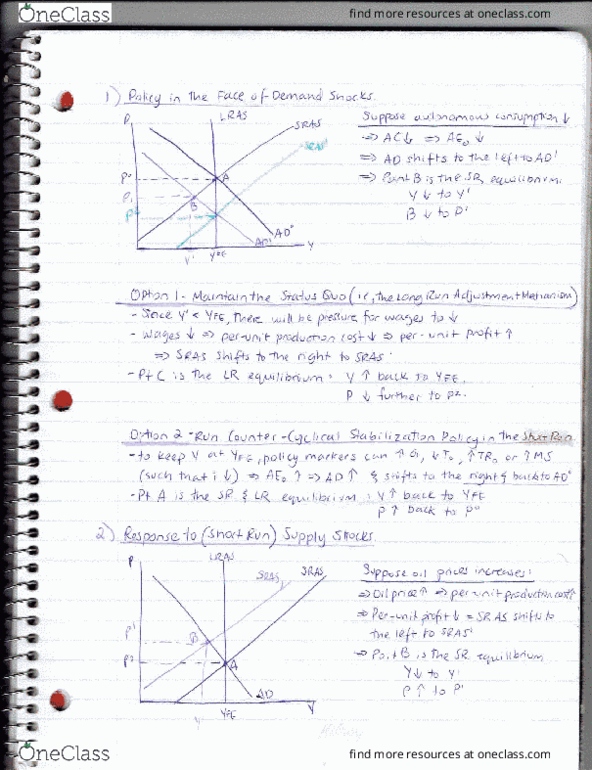 OneClass
find more resources at oneclass.com
1) Policy in the Face of Demand Shocks.
P
LRAS
SRAS
SRAS'
P⁰
A
P,
B
AD⁰
AD'
Y'
YFE
Y
Suppose autonomous consumption ↓
⇒ AC↓ ⇒ AE₀ ↓
⇒ AD shifts to the left to AD'
⇒ Point B is the SR equilibrium.
Y ↓ to Y'
B ↓ to P'
Option 1 - Maintain the Status Quo (ie, the Long Run Adjustment Mechanism)
- Since Y' < YFE, there will be pressure for wages to ↓
- wages ↓ ⇒ per-unit production cost ↓ ⇒ per-unit profit ↑
⇒ SRAS shifts to the right to SRAS'
- Pt C is the LR equilibrium: Y ↑ back to YFE.
P ↓ further to P².
Option 2 - Run Counter-Cyclical Stabilization Policy in the Short Run
- to keep Y at YFE, policy markers can ↑ G, ↓ T₀, ↑TR₀ or ↑ MS
(such that i ↓) ⇒ AE₀ ↑ ⇒ AD ↑ & shifts to the right & back to AD⁰
- Pt A is the SR & LR equilibrium: Y↑ back to YFE
P ↑ back to P⁰
2) Response to (Short Run) Supply Shocks.
P
LRAS
SRAS'
SRAS
P'
B
A
AD
Y'
YFE
Y
Suppose oil prices increases:
⇒ Oil price ↑ ⇒ per-unit production cost↑
⇒ Per-unit profit ↓ = SRAS shifts to
the left to SRAS'
⇒ Point B is the SR equilibrium
Y↓ to Y'
P ↑ to P'
OneClass
find more resources at oneclass.com